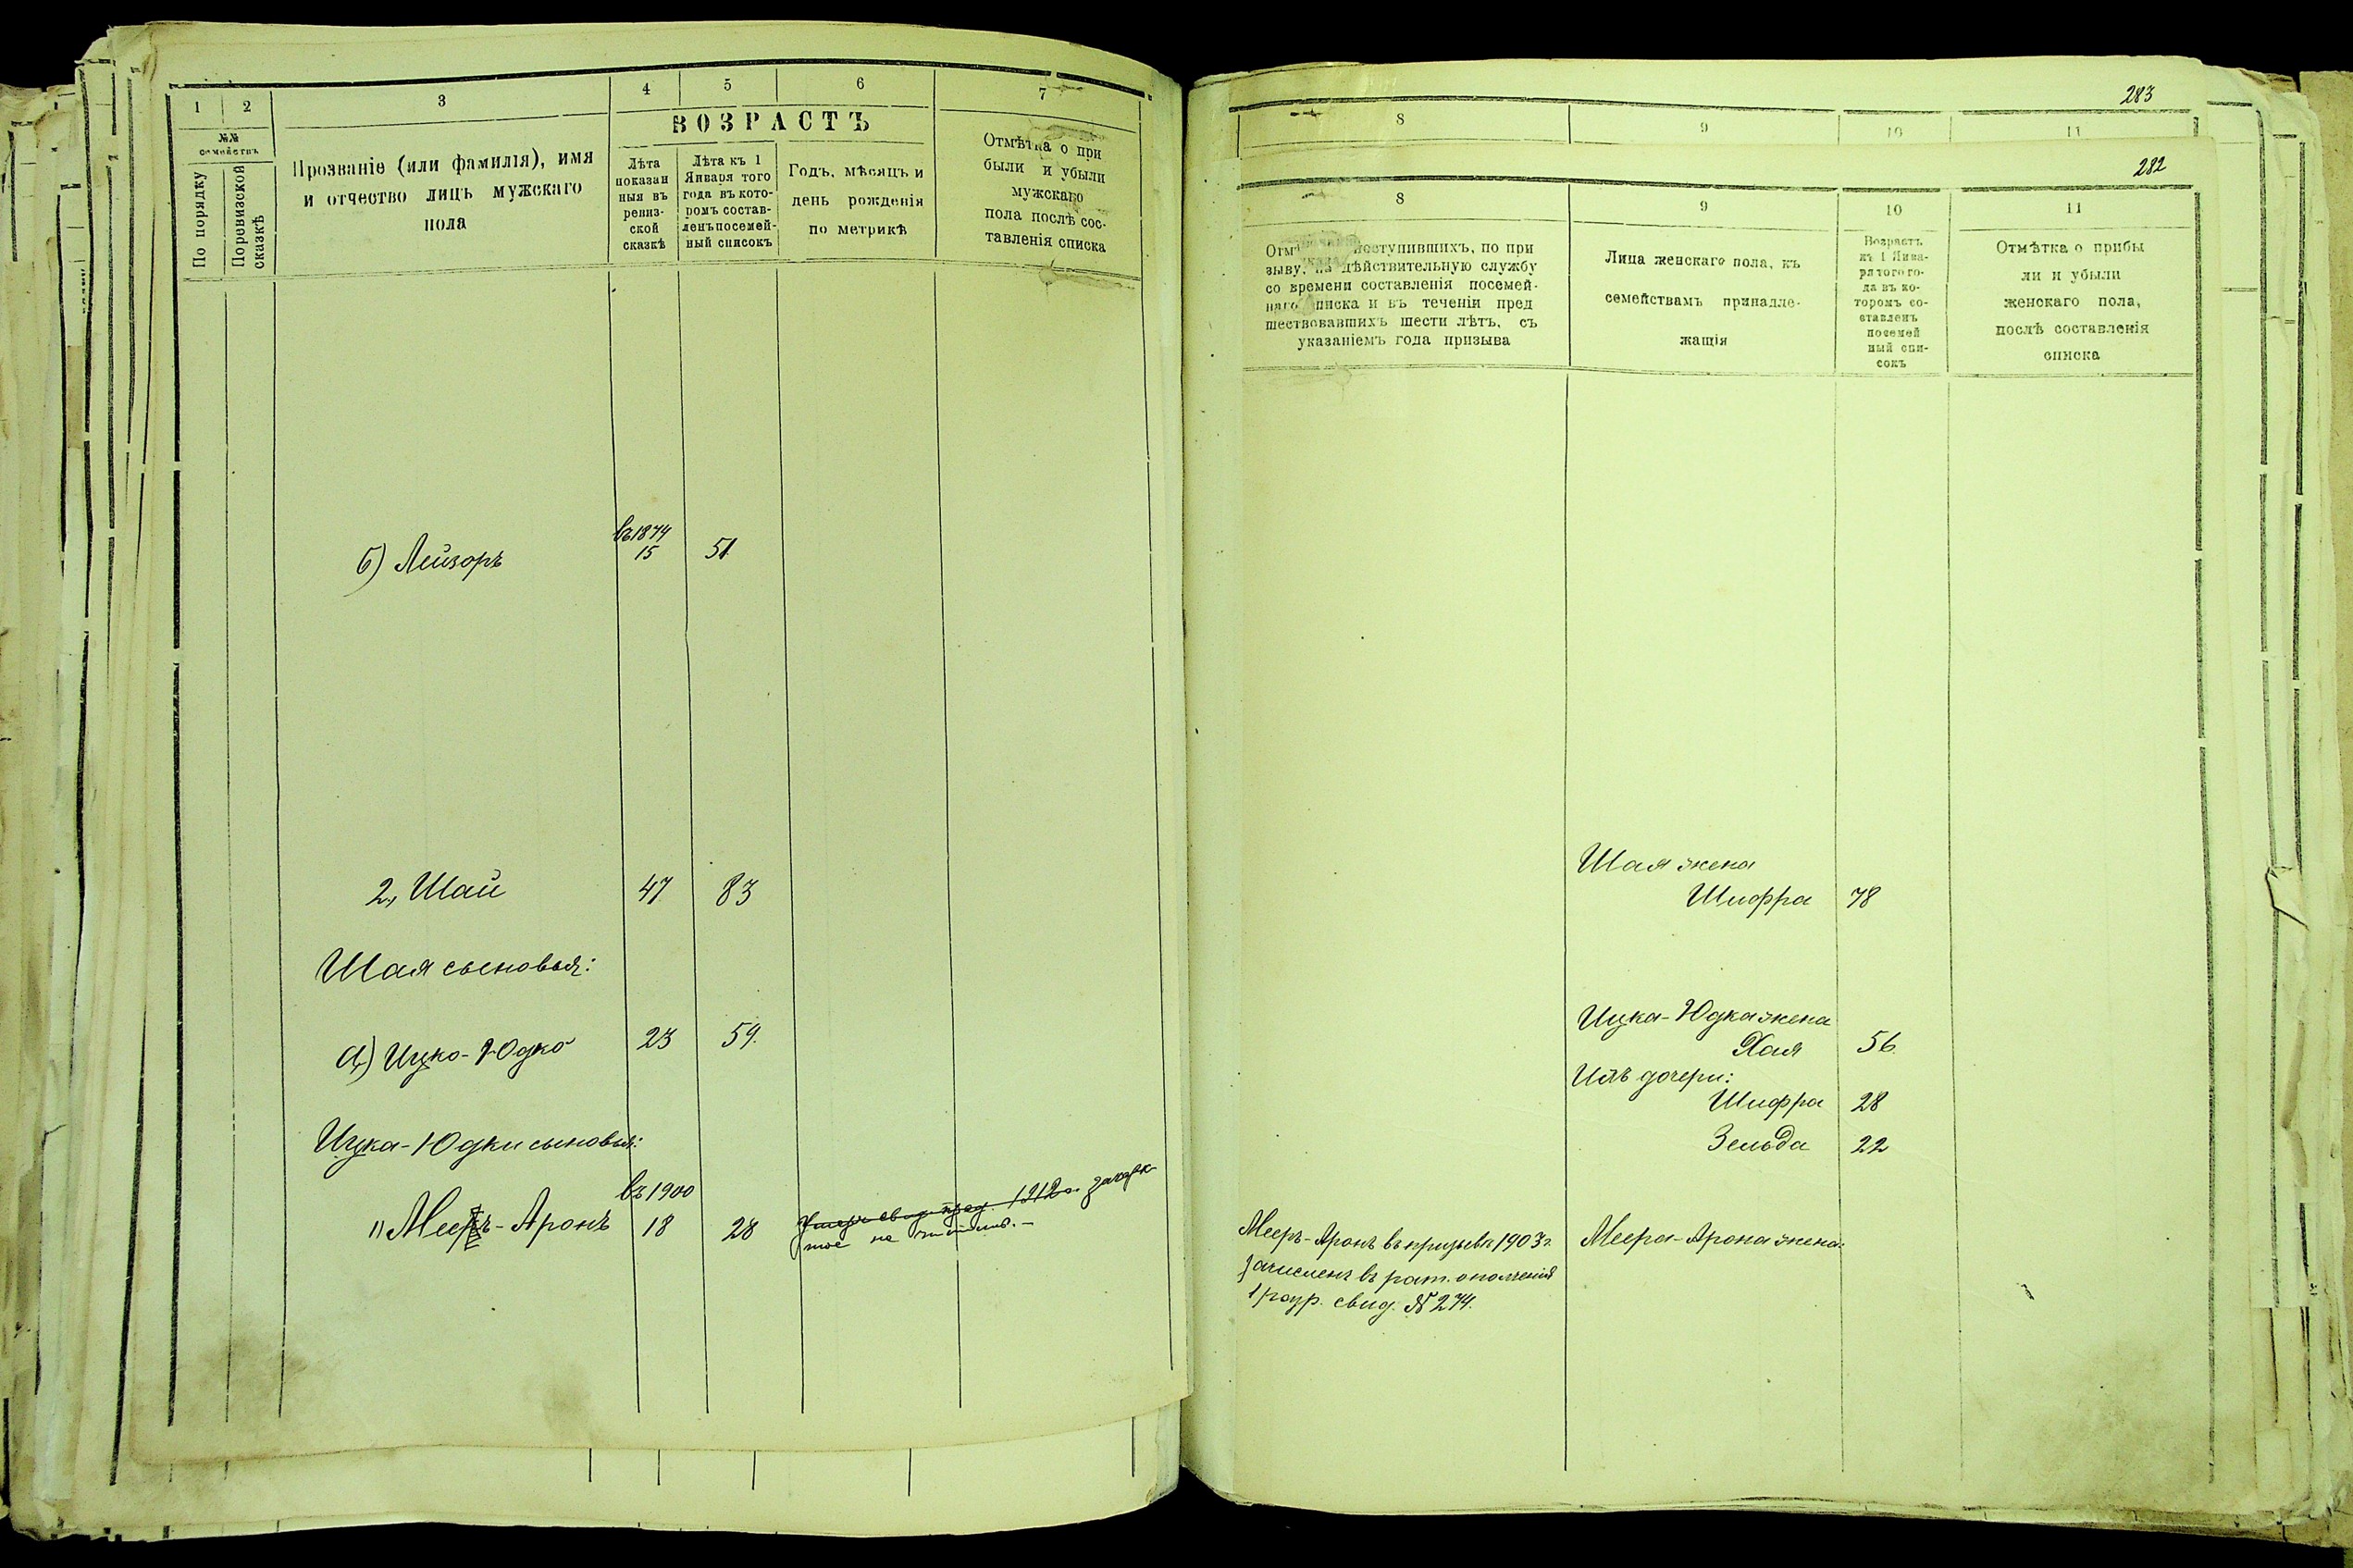 1
2
3
4
5
6
7
№№
семействъ
По порядку
По ревизской
сказкѣ
Прозваніе (или фамилія), имя
и отчество лицъ мужскаго
пола
ВОЗРАСТЪ
Лѣта
показан
ныя въ
ревиз-
ской
сказкѣ
Лѣта къ 1
Января того
года въ кото-
ромъ состав-
ленъ посемей-
ный списокъ
Годъ, мѣсяцъ и
день рожденія
по метрикѣ
Отмѣтка о при
были и убыли
мужскаго
пола послѣ сос-
тавленія списка
въ 1874
б) Лейзоръ 15 51
2, Шай 47 83
Шая сыновья:
а) Ицко-Юдко 23 59.
Ицка-Юдки сыновья:
въ 1900
1) Мееръ-Аронъ 18 28
1912 г. зачерк
тое не
283
8
9
10
11
282
8
9
10
11
поступившихъ, по при
зыву, на дѣйствительную службу
со времени составленія посемей-
наго списка и въ теченіи пред
шествовавшихъ шести лѣтъ, съ
указаніемъ года призыва
Лица женскаго пола, къ
семействамъ принадле-
жащія
Возрастъ
къ 1 Янва-
ря того го-
да въ ко-
торомъ со-
ставленъ
посемей
ный спи-
сокъ
Отмѣтка о прибы
ли и убыли
женскаго пола,
послѣ составленія
списка
Шая жена
Шифра 78
Ицка-Юдка жена
Хая 56
Ихъ дочери:
Шифра 28
Зельда 22
Мееръ-Аронъ въ призывъ 1903 г.
зачисленъ въ рат. ополченія
1 разр. свид. № 274.
Меера-Арона жена: